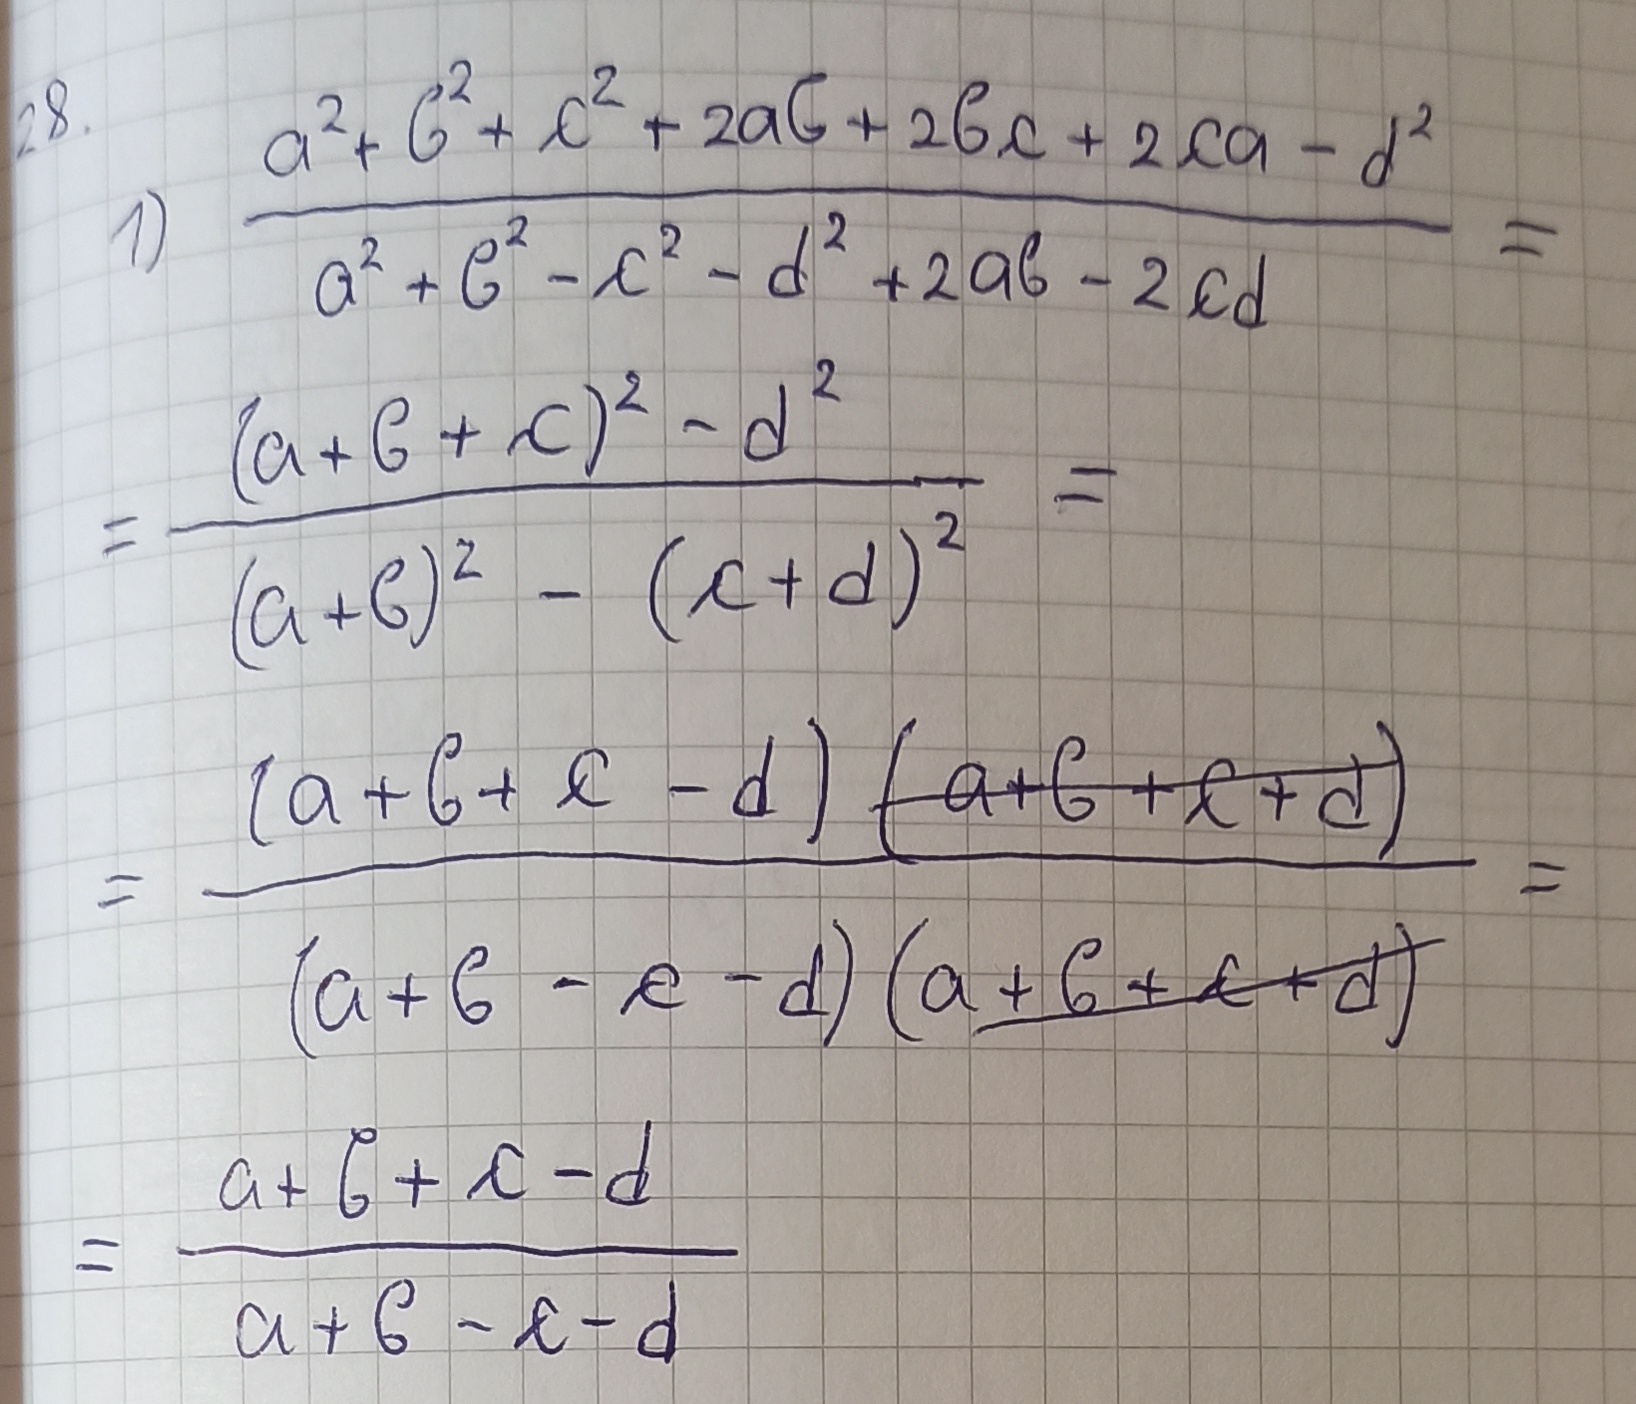 28.
1) (a² + b² + c² + 2ab + 2bc + 2ca - d²) / (a² + b² - c² - d² + 2ab - 2cd) =
= ((a + b + c)² - d²) / ((a + b)² - (c + d)²) =
= ((a + b + c - d) (a + b + c + d)) / ((a + b - c - d) (a + b + c + d)) =
= (a + b + c - d) / (a + b - c - d)